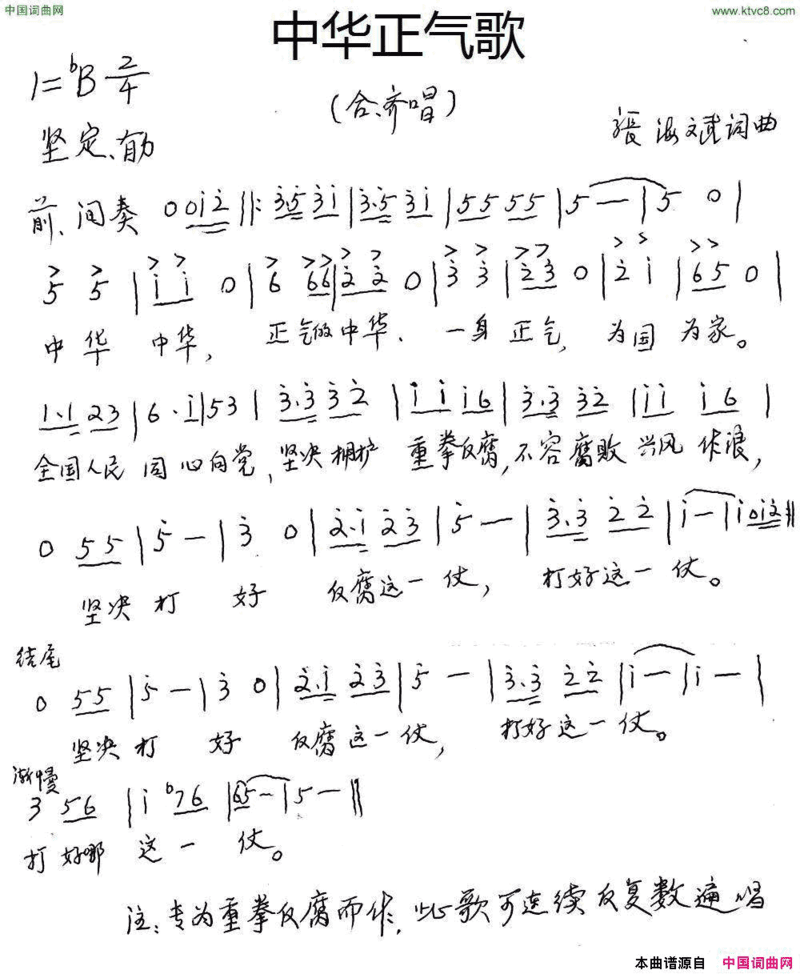 中国词曲网
www.ktvc8.com
中华正气歌
1=♭B 2/4
(合、齐唱)
坚定、有力
張海斌词曲
前、间奏 0 0 i 2 ‖: 3·5 3 i | 3·5 3 i | 5 5 5 5 | 5 — | 5 0 |
5 5 | i i 0 | 6 6 6 | 2 2 0 | 3 3 | 2 3 0 | 2 i | 6 5 0 |
中华 中华, 正气的中华. 一身正气, 为国为家。
1·1 2 3 | 6·i | 5 3 | 3·3 3 2 | i i i 6 | 3·3 3 2 | i i i 6 |
全国人民同心向党,坚决拥护 重拳反腐,不容腐败兴风作浪,
0 5 5 | 5 — | 3 0 | 2·i 2 3 | 5 — | 3·3 2 2 | i — | i 0 i 2 :‖
坚决打 好 反腐这一仗, 打好这一仗。
结尾
0 5 5 | 5 — | 3 0 | 2·i 2 3 | 5 — | 3·3 2 2 | i — | i — |
坚决打 好 反腐这一仗, 打好这一仗。
渐慢
3 5 6 | i ♭7 6 | 6 5 — | 5 — ‖
打 好哪 这一 仗。
注:专为重拳反腐而作,此歌可连续反复数遍唱
本曲谱源自 中国词曲网